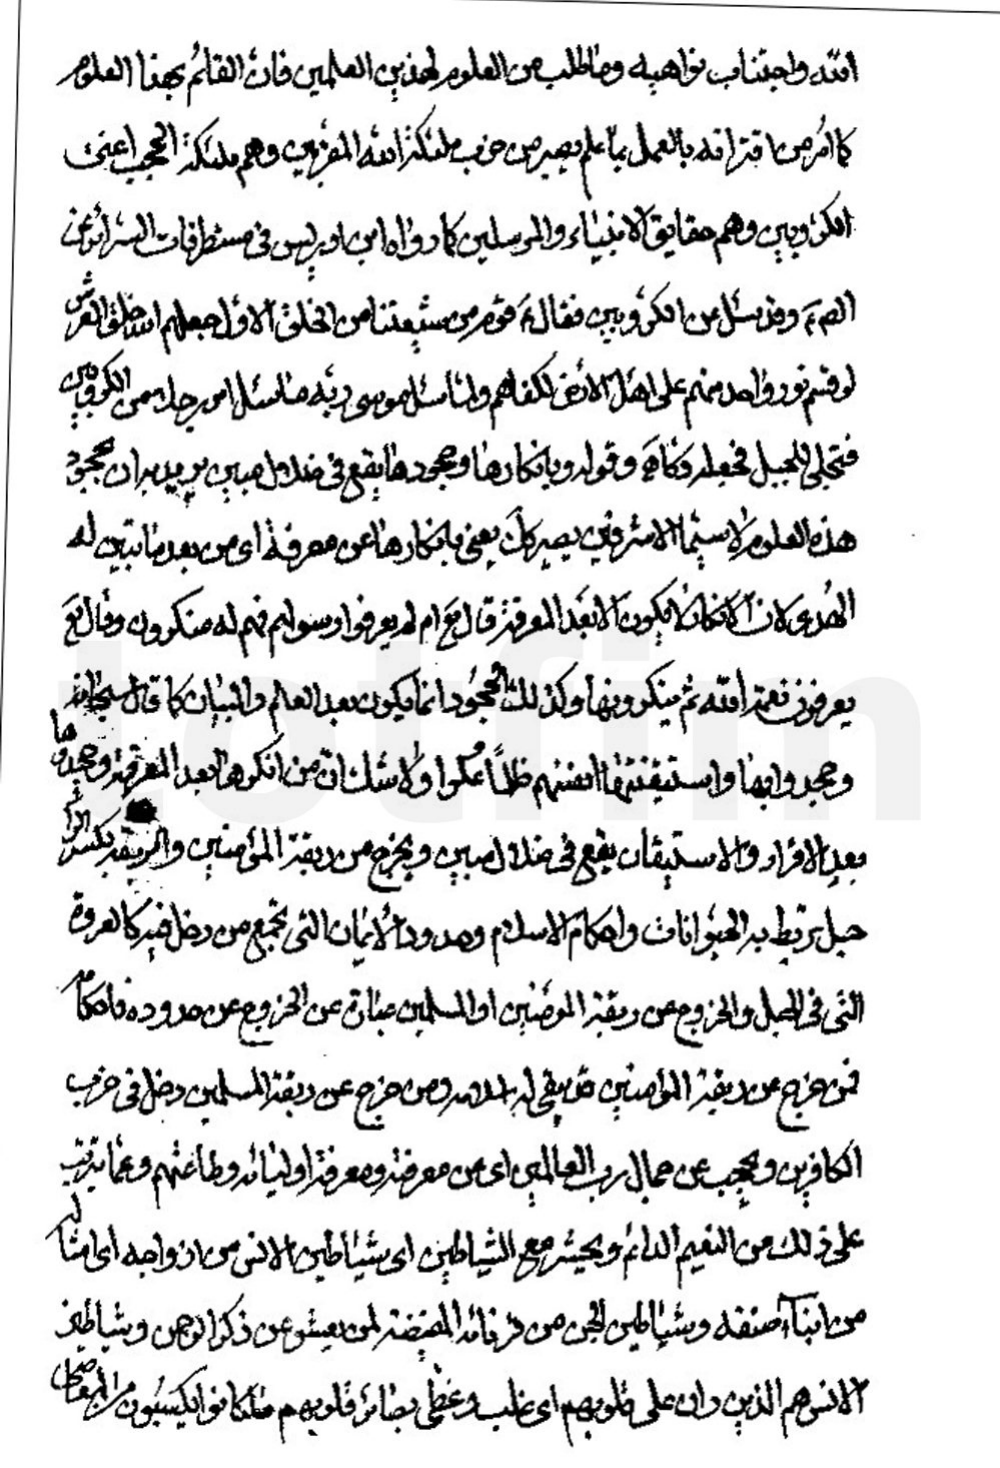 الله واجتناب نواهيه وما طلب من العلوم لهذين العلمين فان القائم بهذا العلوم
كما امر من اقترانه بالعمل بما علم يصير من حزب ملئكة الله المقربين وهم ملئكة الحجب اعنى
الكروبين وهم حقايق الانبياء والمرسلين كما رواه ابن ادريس فى مستطرفات السرائر عن
الصم وقد سئل عن الكروبيين فقال ع قوم من شيعتنا من الخلق الاول جعلهم الله خلف العرش
لو قسم نور واحد منهم على اهل الارض لكفاهم ولما سئل موسى ربه ما سئل امر رجلا من الكروبين
فتجلى للجبل فجعله دكا وقوله وبانكارها وجحودها يقع فى ضلال مبين يريد به ان جحود
هذه العلوم لا سيما الاشرفين يصير يعنى بانكارها عن معرفة اى من بعد ما تبين له
الهدى لان الانكار لا يكون الا بعد المعرفة قال تع ام لم يعرفوا رسولهم فهم له منكرون وقال تع
يعرفون نعمة الله ثم ينكرونها وكذلك الجحود انما يكون بعد العلم والبيان كما قال سبحانه
وجحدوا بها واستيقنتها انفسهم ظلما وعلوا ولا شك ان من انكرها بعد المعرفة وجحدها
بعد الاقرار والاستيقان يقع فى ضلال مبين ويخرج من ربقة المؤمنين والربقة بكسر الراء
حبل يربط به الحيوانات واحكام الاسلام وحدود الايمان التى تجمع من دخل فيه كالعروة
التى فى الحبل والخروج عن ربقة المؤمنين او المسلمين عبارة عن الخروج عن حدوده واحكامه
فمن خرج عن ربقة المؤمنين قد يبقى له اسلامه ومن خرج عن ربقة المسلمين دخل فى حزب
الكافرين ويحجب عن جمال رب العالمين اى عن معرفته ومعرفة اوليائه وطاعتهم وعما يترتب
على ذلك من النعيم الدائم ويحشر مع الشياطين اى شياطين الانس من ازواجه اى امثاله
من ابناء صنفه وشياطين الجن من قرنائه المقيضة لمن يعش عن ذكر الرحمن وشياطين
الانس هم الذين ران على قلوبهم اى غلب وغطى بصائر قلوبهم ما كانوا يكسبون من المعاصى